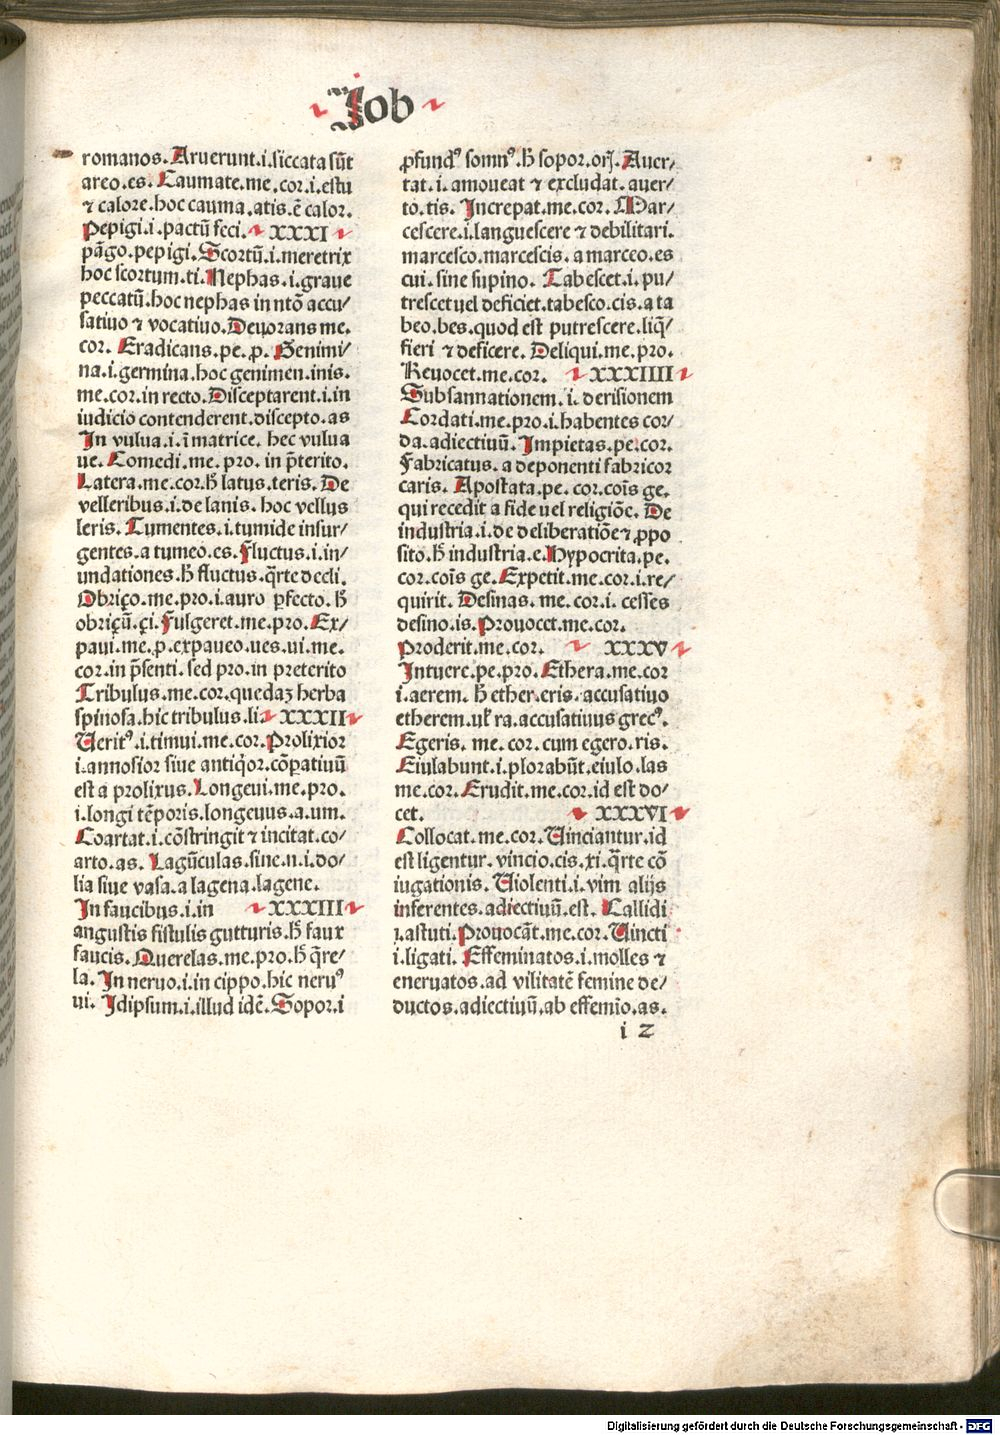 Job
romanos. Aruerunt.i.siccata sūt
areo.es. Caumate.me.cor.i.estu
⁊ calore.hoc cauma.atis.ē calor.
Pepigi.i.pactū feci. XXXI
pāgo.pepigi.Scortū.i.meretrix
hoc scortum.ti.Nephas.i.graue
peccatū.hoc nephas in ntō accu/
satiuo ⁊ vocatiuo.Deuorans me.
cor. Eradicans.pe.ꝓ. Genimi/
na.i.germina.hoc genimen.inis.
me.cor.in recto.Disceptarent.i.in
iudicio contenderent.discepto.as
In vulua.i.ī matrice. hec vulua
ue. Comedi.me.pro. in p̄terito.
Latera.me.cor.h̄ latus.teris. De
velleribus.i.de lanis. hoc vellus
leris. Tumentes.i.tumide insur/
gentes.a tumeo.es. Fluctus.i.in/
undationes.h̄ fluctus.q̄rte decli.
Obriço.me.pro.i.auro ꝑfecto.h̄
obriçū.çi.Fulgeret.me.pro. Ex/
paui.me.p.expaueo.ues.ui.me.
cor.in p̄senti.sed pro.in preterito
Tribulus.me.cor.quedaꝫ herba
spinosa.hic tribulus.li. XXXII
Uerit⁹.i.timui.me.cor.Prolixior
i.annosior siue antiq̇or.cōꝑatiuū
est a prolixus. Longeui.me.pro.
i.longi tēporis.longeuus.a.um.
Coartat.i.cōstringit ⁊ incitat.co/
arto.as. Lagūculas.sine.n.i.do/
lia siue vasa.a lagena.lagene.
In faucibus.i.in XXXIII
angustis fistulis gutturis.h̄ faux
faucis. Querelas.me.pro.h̄ q̄re/
la. In neruo.i.in cippo.hic neru⁹
ui. Idipsum.i.illud idē.Sopor.i
ꝓfund⁹ somn⁹.h̄ sopor.orꝭ. Auer/
tat.i.amoueat ⁊ excludat.auer/
to.tis. Increpat.me.cor. Mar/
cescere.i.languescere ⁊ debilitari.
marcesco.marcescis.a marceo.es
cui.sine supino. Tabescet.i.pu/
trescet uel deficiet.tabesco.cis.a ta
beo.bes.quod est putrescere.liq̇/
fieri ⁊ deficere. Deliqui.me.pro.
Reuocet.me.cor. XXXIIII
Subsannationem.i.derisionem
Cordati.me.pro.i.habentes cor/
da.adiectiuū. Impietas.pe.cor.
Fabricatus.a deponenti fabricor
caris. Apostata.pe.cor.cois̄ ge.
qui recedit a fide uel religiōe. De
industria.i.de deliberatiōe ⁊ ꝓpo
sito.h̄ industria.e.Hypocrita.pe.
cor.cois̄ ge.Expetit.me.cor.i.re/
quirit. Desinas.me.cor.i. cesses
desino.is.Prouocet.me.cor.
Proderit.me.cor. XXXV
Intuere.pe.pro. Ethera.me.cor
i.aerem. h̄ ether.eris.accusatiuo
etherem.uł ra.accusatiuus grec⁹.
Egeris. me.cor.cum egero.ris.
Eiulabunt.i.plorabūt.eiulo.las
me.cor. Erudit.me.cor.id est do/
cet. XXXVI
Collocat.me.cor.Uinciantur.id
est ligentur. vincio.cis.xi.q̄rte cō
iugationis. Uiolenti.i.vim alijs
inferentes.adiectiuū.est. Callidi
i.astuti.Prouocāt.me.cor.Uincti
i.ligati. Effeminatos.i.molles ⁊
eneruatos.ad vilitatē femine de/
ductos.adiectiuū.ab effemio.as.
i 2
Digitalisierung gefördert durch die Deutsche Forschungsgemeinschaft - DFG